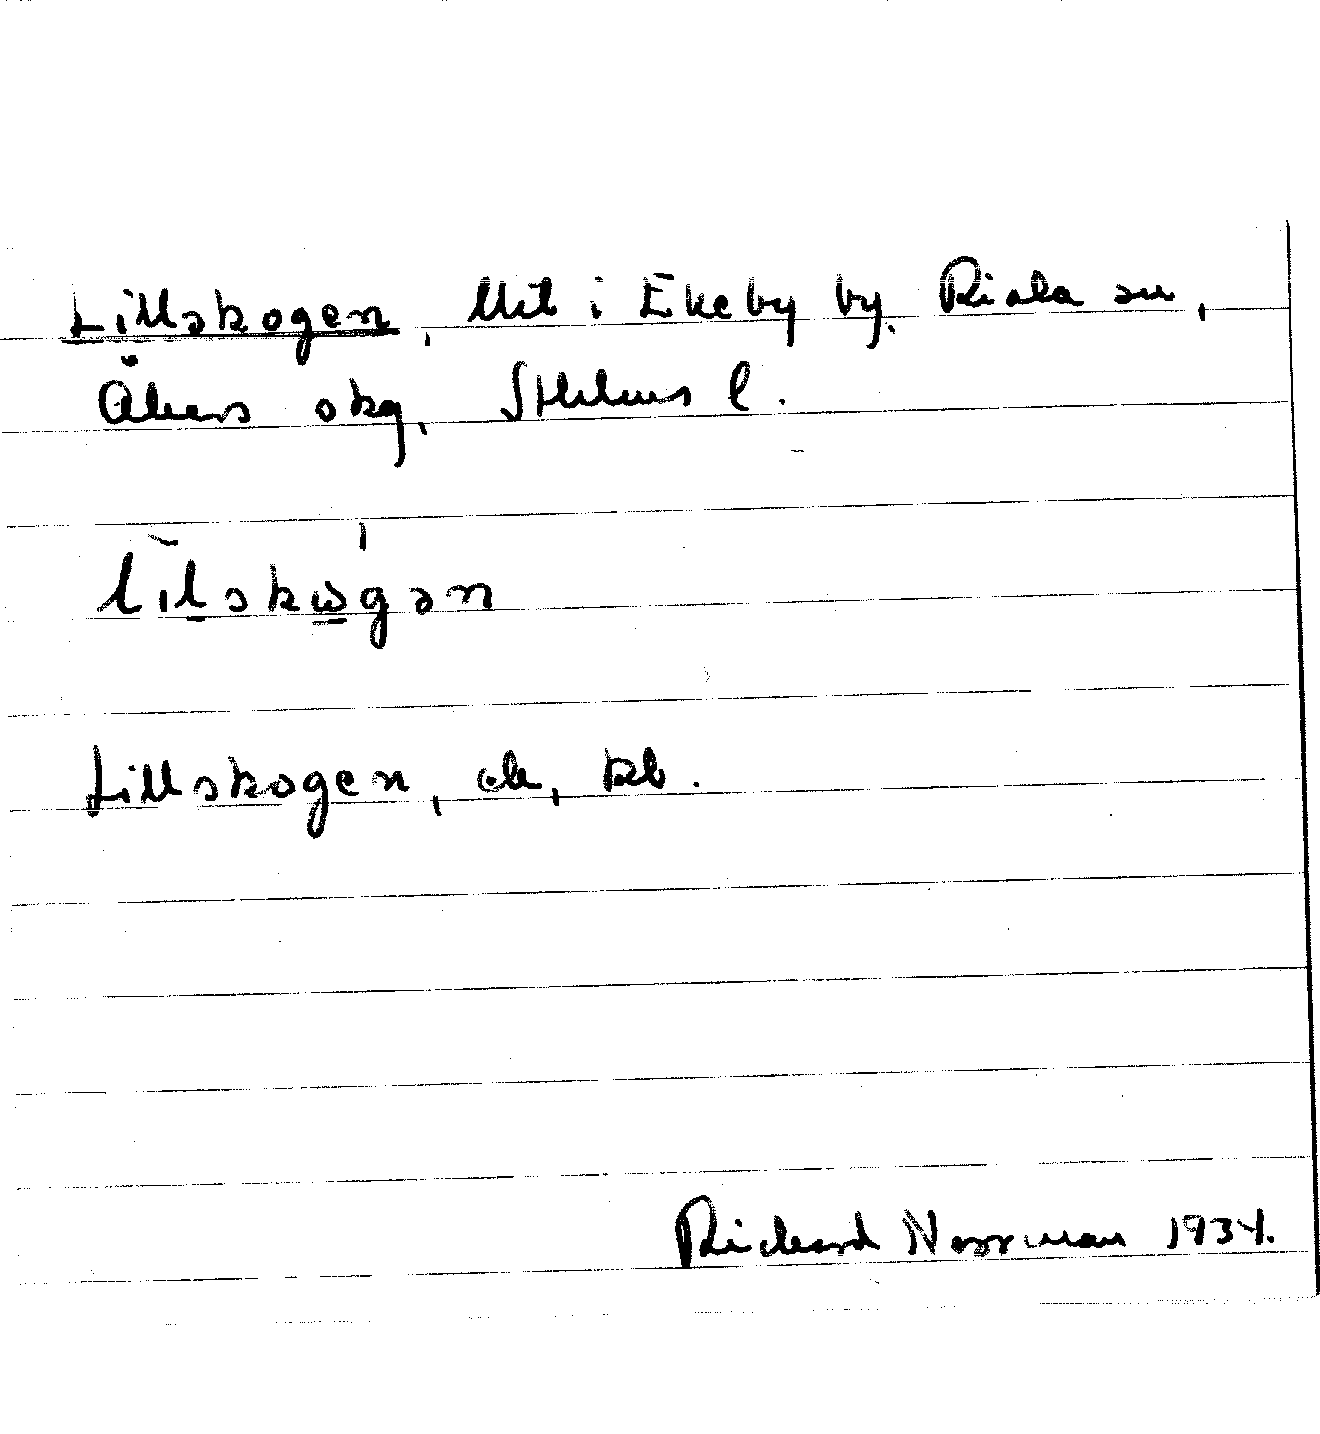 Lillskogen, Utst i Ekeby by, Riala sn,
Åkers skg, Sthlms l.
lilskωgən
Lillskogen, ek, kb.
Rickard Norrman 1934.